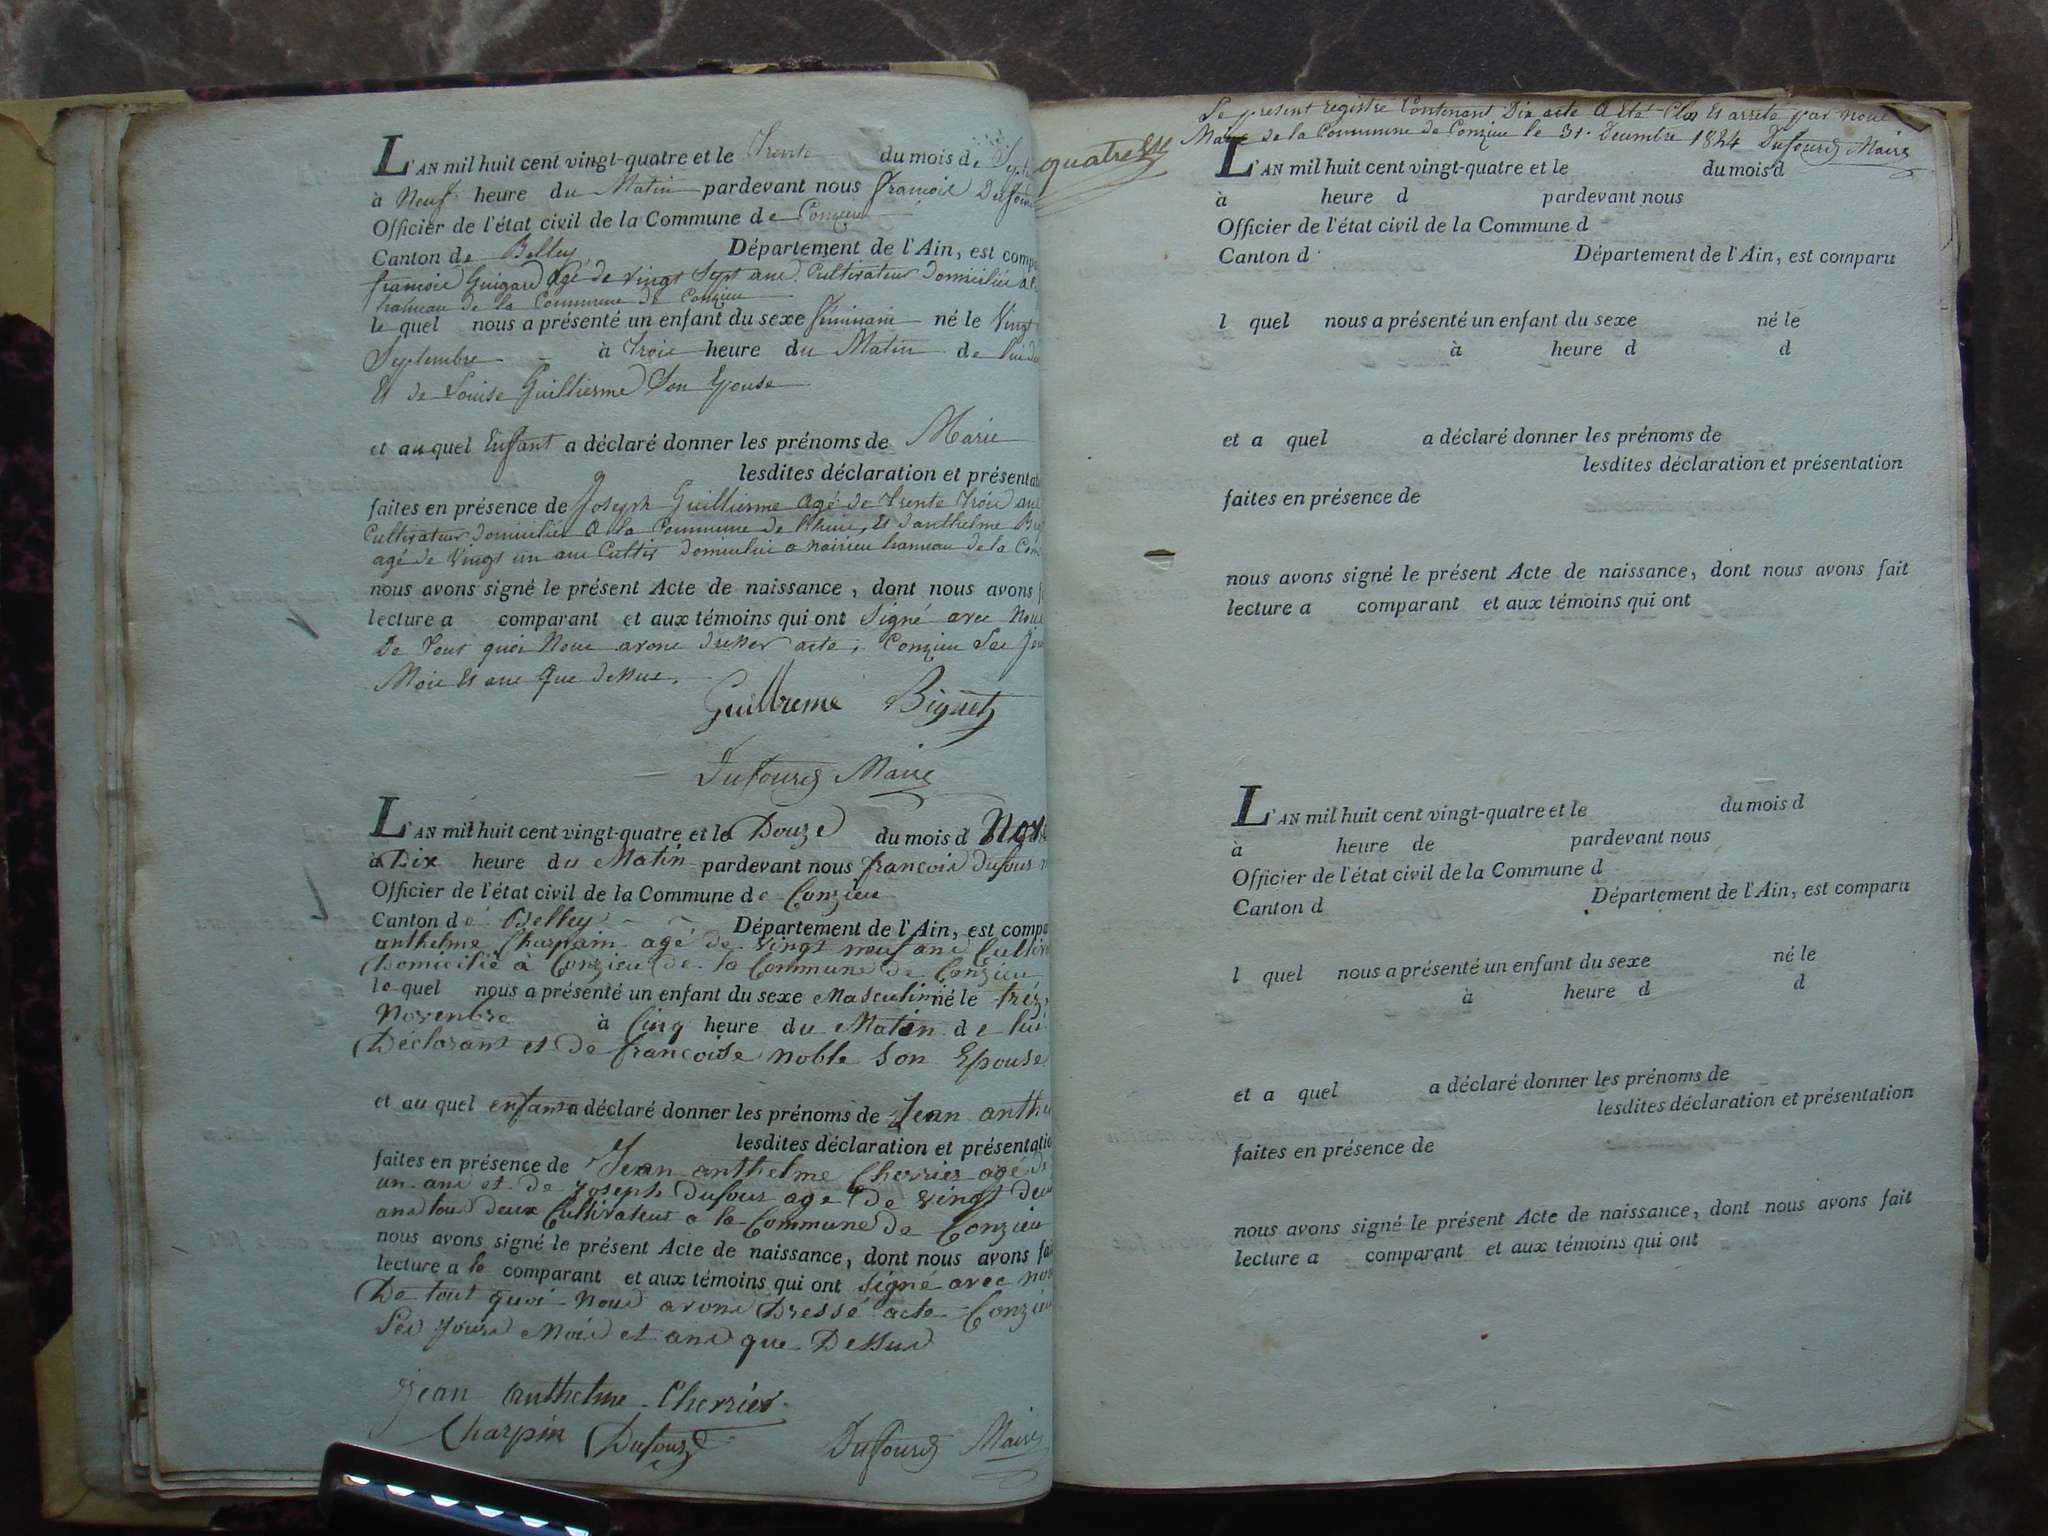 L'AN mil huit cent vingt-quatre et le Trente du mois de Sept
à Neuf heure du Matin pardevant nous francois Dufour
Officier de l'état civil de la Commune de Conzieu
Canton de Belley Département de l'Ain, est compa
francois Guigard agé de vingt Sept ans Cultivateur domicilié a
hameau de la Commune de Conzieu
le quel nous a présenté un enfant du sexe féminain né le Vingt
Septembre à Trois heure du Matin de lui de
Et de Louise Guillierme Son Epouse
et au quel Enfant a déclaré donner les prénoms de Marie
lesdites déclaration et présentat
faites en présence de Joseph Guillierme agé de Trente Trois ans
Cultivateur domicilié a la Commune de Et d'anthelme
agé de Vingt un ans Cultiv domicilié a hameau de la Com
nous avons signé le présent Acte de naissance, dont nous avons f
lecture a comparant et aux témoins qui ont Signé avec Nous
De Tout quoi Nous avons dresser acte, Conzieu Les Jour
Mois Et ans que dessus.
Guillreme Biguet
Dufour Maire
L'AN mil huit cent vingt-quatre et le Douze du mois d Nove
à Dix heure du Matin pardevant nous francois dufour m
Officier de l'état civil de la Commune de Conzieu
Canton de Belley Département de l'Ain, est compa
anthelme Charpain agé de vingt neuf ans Cultiva
Domicilié à Conzieu de la Commune de Conzieu
le quel nous a présenté un enfant du sexe Masculin né le tréz
Novenbre à Cinq heure du Matin de lui
Déclarant et de francoise noble son Epouse
et au quel enfant a déclaré donner les prénoms de Jean anthe
lesdites déclaration et présentatio
faites en présence de Jean anthelme Cherrier agé de
un ans et de Joseph dufour age de vingt deux
ans tous deux Cultivateur a la Commune de Conzieu
nous avons signé le présent Acte de naissance, dont nous avons fai
lecture a le comparant et aux témoins qui ont Signé avec nou
De tout quoi Nous avons Dressé acte Conzieu
Les Jours Mois et ans que Dessus
Jean anthelme Cherrier
Charpin Dufour Dufour Maire
Le present registre Contenant Dix acte a Eté Clos Et arreté par nous
Maire de la Commune de Conzieu le 31 Decembre 1824 Dufour Maire
L'AN mil huit cent vingt-quatre et le du mois d
à heure d pardevant nous
Officier de l'état civil de la Commune d
Canton d Département de l'Ain, est comparu
l quel nous a présenté un enfant du sexe né le
à heure d d
et a quel a déclaré donner les prénoms de
lesdites déclaration et présentation
faites en présence de
nous avons signé le présent Acte de naissance, dont nous avons fait
lecture a comparant et aux témoins qui ont
L'AN mil huit cent vingt-quatre et le du mois d
à heure de pardevant nous
Officier de l'état civil de la Commune d
Canton d Département de l'Ain, est comparu
l quel nous a présenté un enfant du sexe né le
à heure d d
et a quel a déclaré donner les prénoms de
lesdites déclaration et présentation
faites en présence de
nous avons signé le présent Acte de naissance, dont nous avons fait
lecture a comparant et aux témoins qui ont